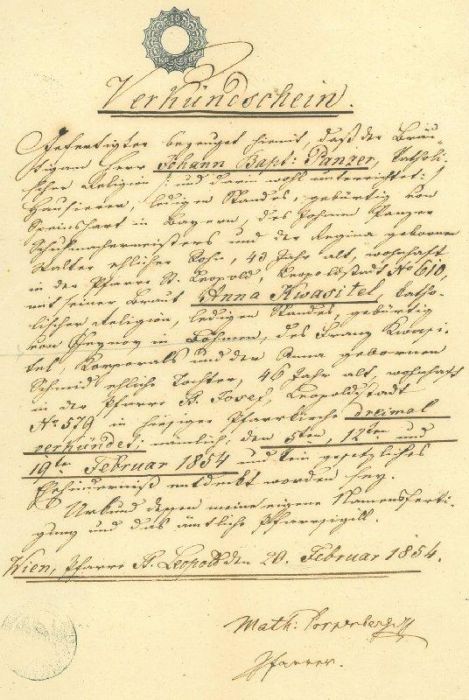 Verkündschein.
Gefertigter bezeuget hiemit, daß der Bräu-
tigam Herr Johann Bapt: Panzer, katholi-
scher Religion /: und darin wohl unterrichtet:/
Hausierer, ledigen Standes, gebürtig von
Seinsheim in Bayern, des Johann Panzer
Schuhmachermeisters und der Regina gebornen
Walter ehlicher Sohn, 43 Jahr alt, wohnhaft
in der Pfarre St. Leopold, Leopoldstadt No 610,
mit seiner Braut Anna Kwasitel, katho-
lischer Religion, ledigen Standes, gebürtig
von in Böhmen, des Franz Kwasi-
tel, Korporals und der Anna gebornen
Schmid ehliche Tochter, 46 Jahr alt, wohnhaft
in der Pfarre St. Josef, Leopoldstadt
No 579 in hiesiger Pfarrkirche dreimal
verkündet; nämlich; den 5ten, 12ten und
19te Februar 1854 und kein gesetzliches
Ehehinderniß entdeckt worden sey.
Urkund dessen meine eigene Namensferti-
gung und das ämtliche Pfarrsigill.
Wien, Pfarre St. Leopold den 20. Februar 1854.
Math:
Pfarrer.